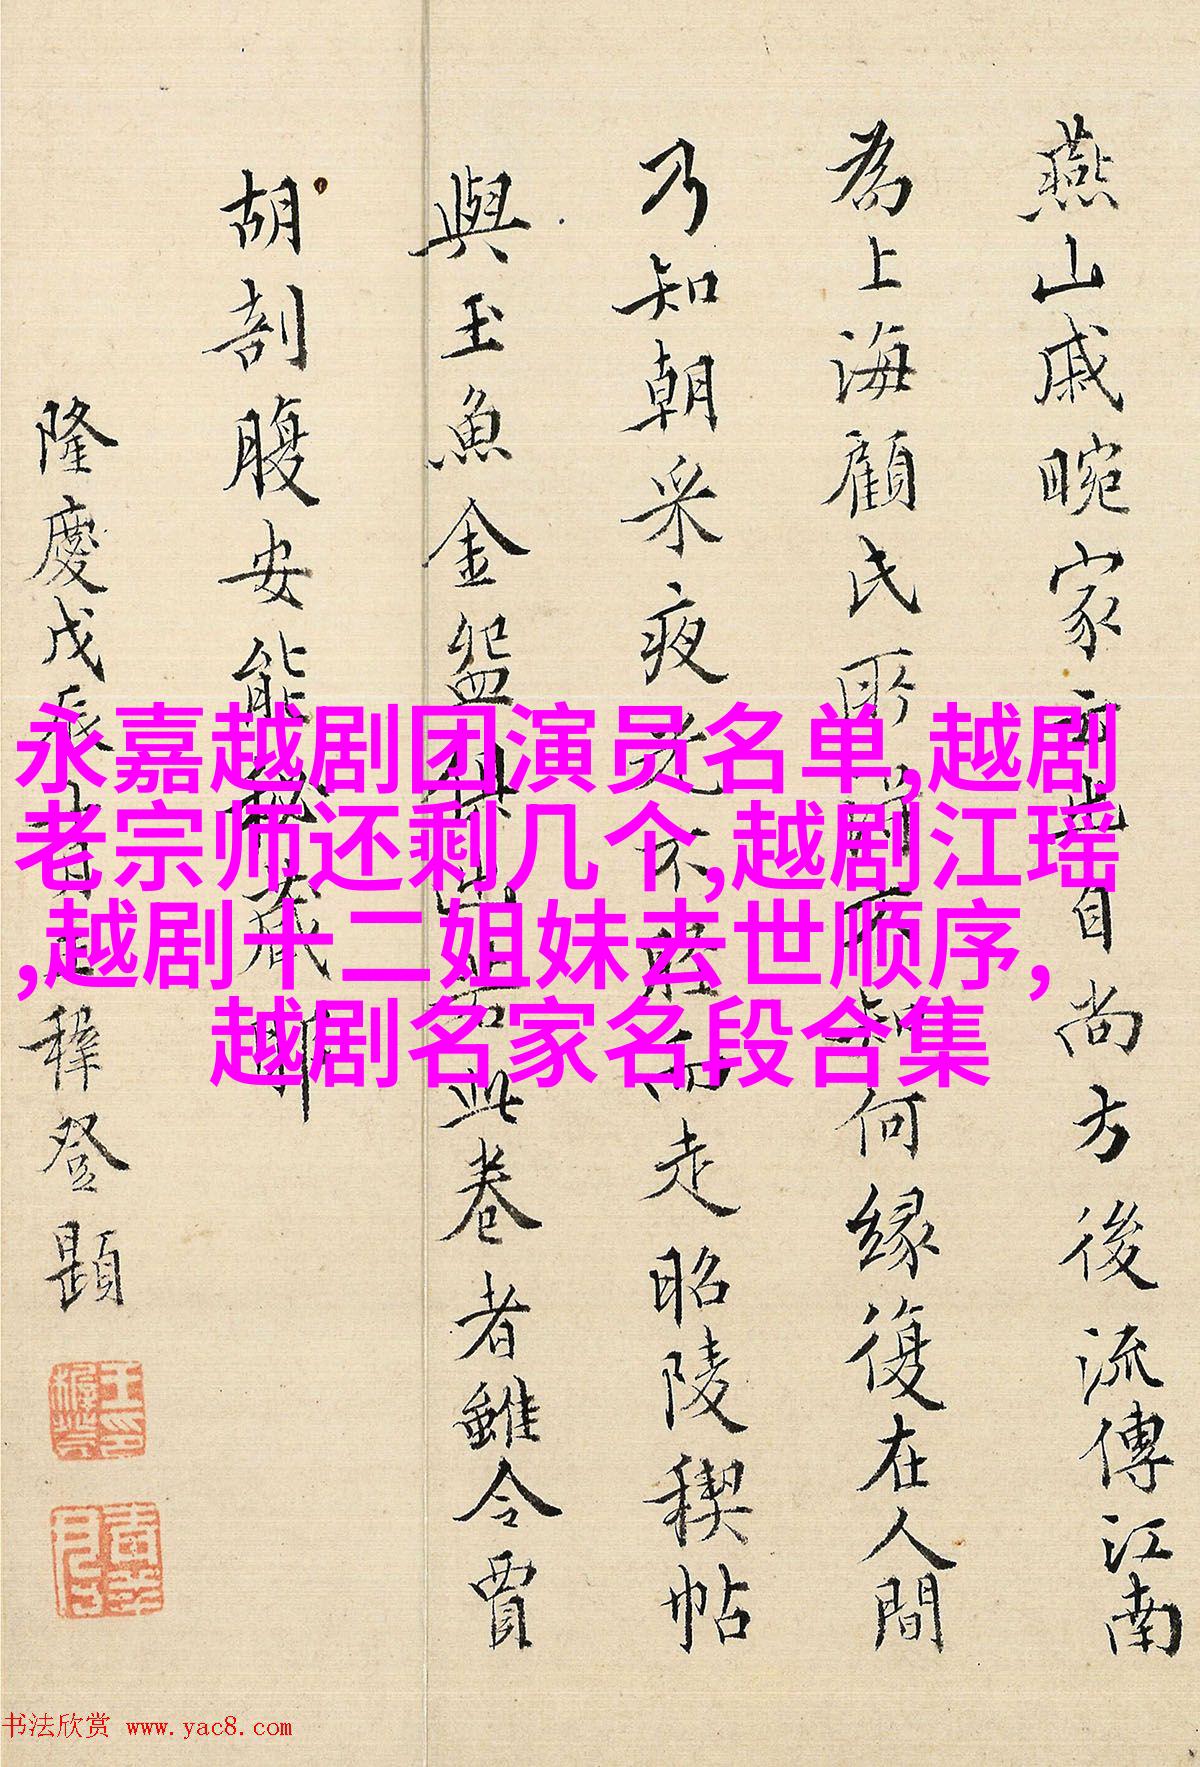 燕山戚畹家
自尚方後流傳江南
為上海顧氏所
何緣復在人間
乃知朝采夜光不
而走昭陵稧帖
與玉魚金盌
此卷者雖令賈
胡剖腹安能
藏耶
隆慶戊辰
王穉登題
永嘉越剧团演员名单,越剧
老宗师还剩几个,越剧江瑶
,越剧十二姐妹去世顺序,
越剧名家名段合集
书法欣赏 www.yac8.com